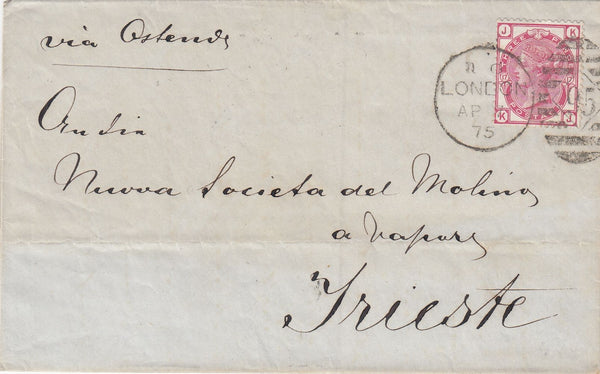 via Ostende
J K
LONDON
AP
75
K J
An die
Nuova Societa del Molino
a vapore
Trieste